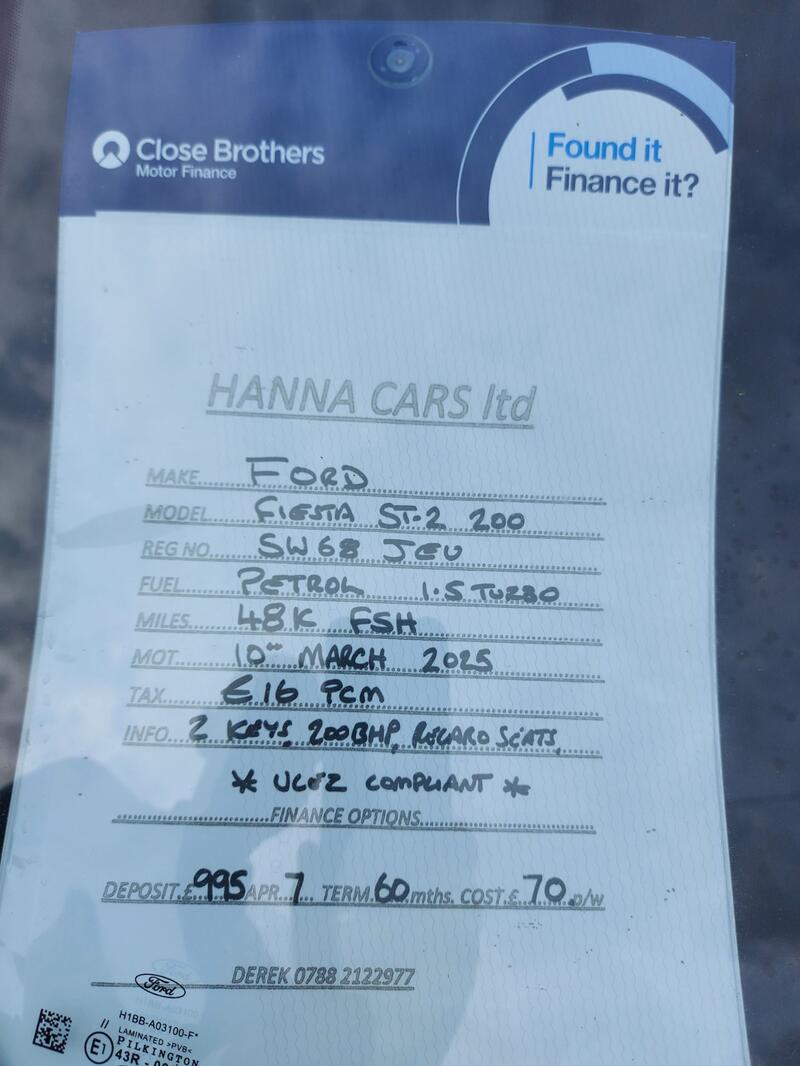 Close Brothers
Motor Finance
Found it
Finance it?
HANNA CARS ltd
MAKE...... FORD
MODEL FIESTA ST-2 200
REG NO.... SW68 JEU
FUEL...... PETROL 1.5 TURBO
MILES..... 48K FSH
MOT....... 10TH MARCH 2025
TAX....... £16 PCM
INFO... 2 KEYS, 200BHP, RECARO SEATS,
* ULEZ COMPLIANT *
FINANCE OPTIONS
DEPOSIT.£995 APR 7 TERM 60 mths. COST.£ 70 p/w
DEREK 0788 2122977
Ford
H1BB-A03100-F*
// LAMINATED >PVB<
PILKINGTON
E1 43R - 00